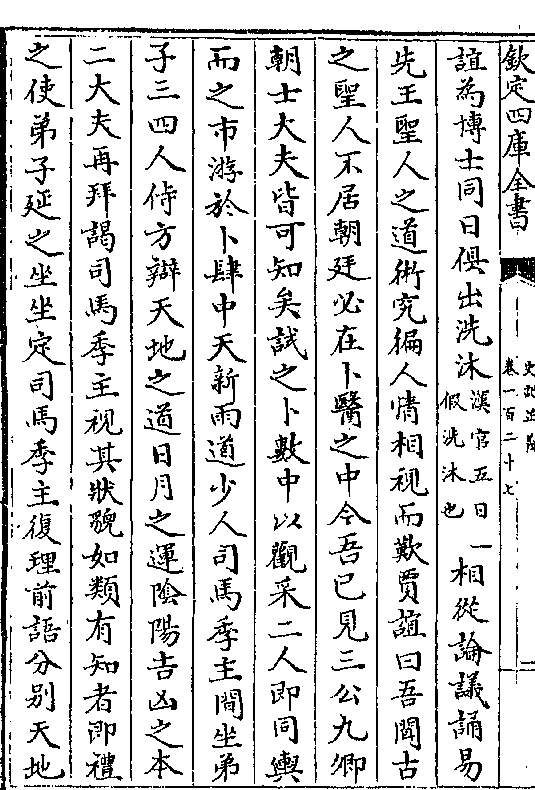 欽定四庫全書
卷一百二十七
誼為博士同日俱出洗沐漢官五日一假洗沐也相從論議誦易
先王聖人之道術究徧人情相視而歎賈誼曰吾聞古
之聖人不居朝廷必在卜醫之中今吾已見三公九卿
朝士大夫皆可知矣試之卜數中以觀采二人即同輿
而之市游於卜肆中天新雨道少人司馬季主閒坐弟
子三四人侍方辯天地之道日月之運陰陽吉凶之本
二大夫再拜謁司馬季主視其狀貌如類有知者即禮
之使弟子延之坐坐定司馬季主復理前語分别天地